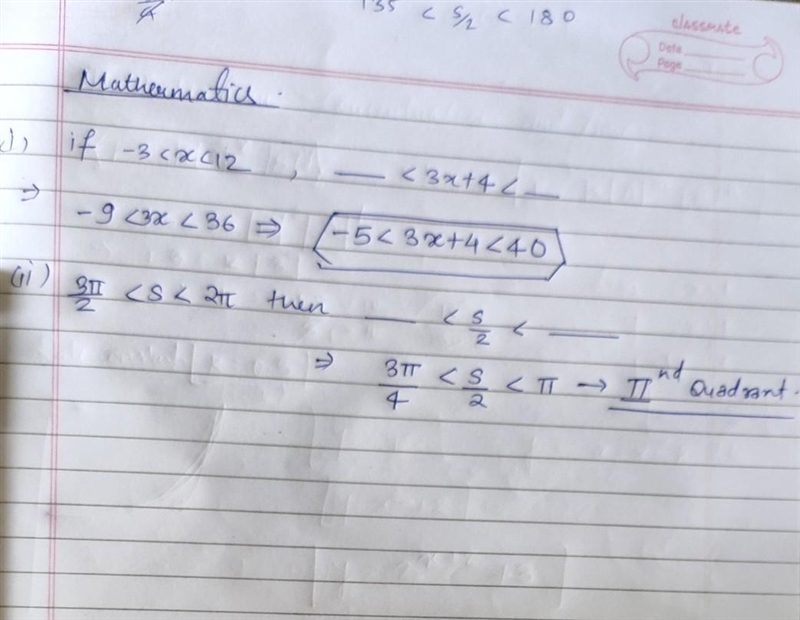 135 < s/2 < 180
classmate
Date
Page
Mathermatics.
i) if -3<x<12 , __ < 3x+4 < __
⇒ -9<3x<36 ⇒ -5<3x+4<40
(ii) 3π/2 < s < 2π then __ < s/2 < __
⇒ 3π/4 < s/2 < π → IInd Quadrant.